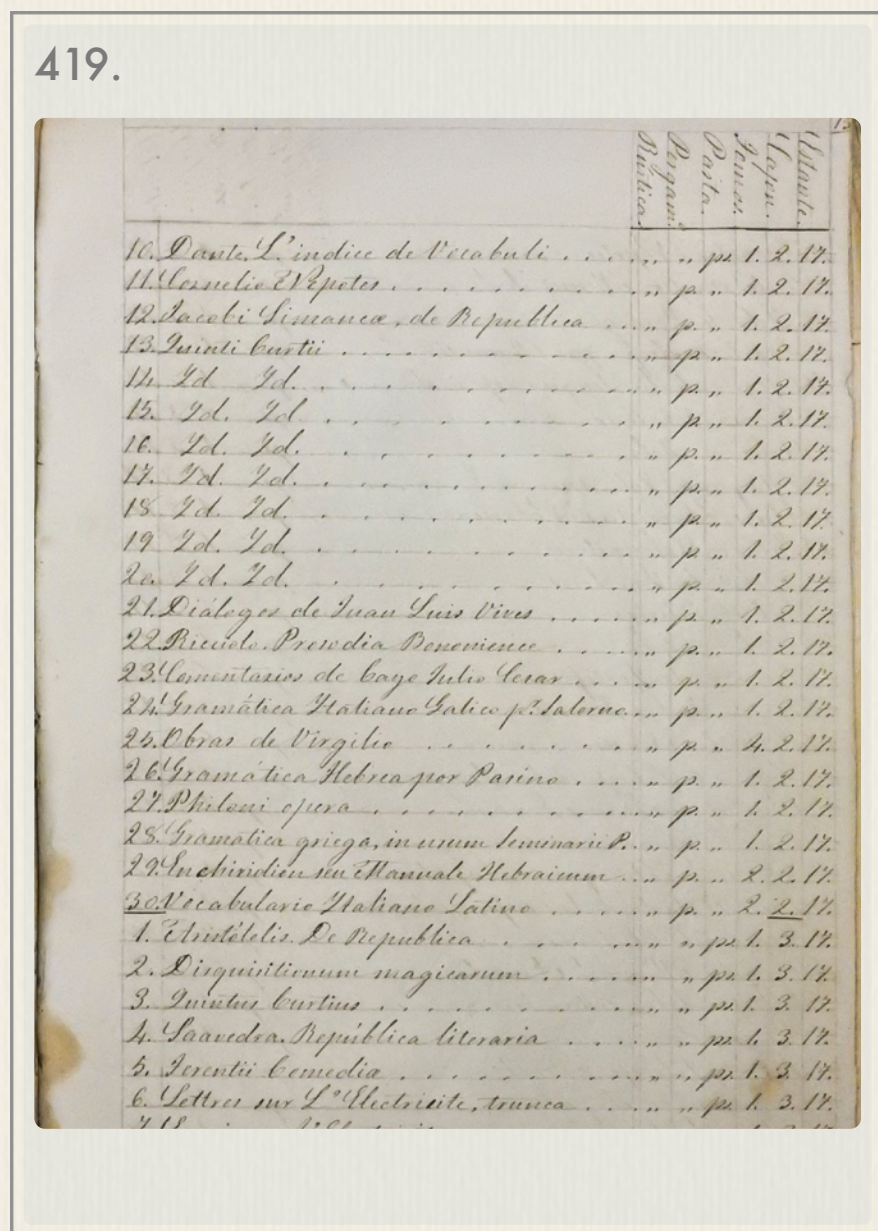 419.
Rústica. Pergam.º Pasta. Tomos. Cajon. Estante.
10. Dante. L' indice de Vocabuli . . . . „ „ pᵃ 1. 2. 17.
11. Cornelio Nepotes . . . . „ p. „ 1. 2. 17.
12. Jacobi Simancæ, de Republica . . . . „ p. „ 1. 2. 17.
13. Quinti Curtii . . . . „ p „ 1. 2. 17.
14. Id. Id. . . . . „ p. „ 1. 2. 17.
15. Id. Id . . . . „ p. „ 1. 2. 17.
16. Id. Id. . . . . „ p. „ 1. 2. 17.
17. Id. Id. . . . . „ p. „ 1. 2. 17.
18 Id. Id. . . . . „ p. „ 1. 2. 17.
19 Id. Id. . . . . „ p. „ 1. 2. 17.
20. Id. Id. . . . . „ p. „ 1. 2. 17.
21. Diálogos de Juan Luis Vives . . . . „ p. „ 1. 2. 17.
22. Prosodia . . . . „ p. „ 1. 2. 17.
23. Comentarios de Cayo Julio Cesar . . . . „ p „ 1. 2. 17.
24. Gramática Italiano Galico pʳ. Salerno . . . . „ p. „ 1. 2. 17.
25. Obras de Virgilio . . . . „ p. „ 4. 2. 17.
26. Gramática Hebrea por Pasino . . . . „ p. „ 1. 2. 17.
27. Philoni opera . . . . „ p. „ 1. 2. 17.
28. Gramática griega, in usum Seminarii P. . . „ p. „ 1. 2. 17.
29. Enchiridion seu Manuale Hebraicum . . . „ p. „ 2. 2. 17.
30. Vocabulario Italiano Latino . . . . „ p. „ 2. 2. 17.
1. Aristótelis. De Republica . . . . „ „ pᵃ 1. 3. 17.
2. Disquisitionum magicarum . . . . „ „ pᵃ 1. 3. 17.
3. Quintus Curtius . . . . „ „ pᵃ 1. 3. 17.
4. Saavedra. República literaria . . . . „ „ pᵃ 1. 3. 17.
5. Terentii Comedia . . . . „ „ pᵃ 1. 3. 17.
6. Lettres sur L'Electricite, trunca . . . . „ „ pᵃ 1. 3. 17.